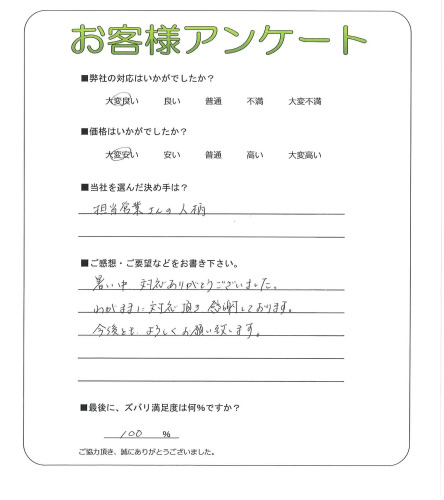 お客様アンケート
■弊社の対応はいかがでしたか？
大変良い 良い 普通 不満 大変不満
■価格はいかがでしたか？
大変安い 安い 普通 高い 大変高い
■当社を選んだ決め手は？
担当営業さんの人柄
■ご感想・ご要望などをお書き下さい。
暑い中 対応ありがとうございました。
わがままに対応頂き 感謝しております。
今後とも よろしくお願い致します。
■最後に、ズバリ満足度は何％ですか？
100 ％
ご協力頂き、誠にありがとうございました。